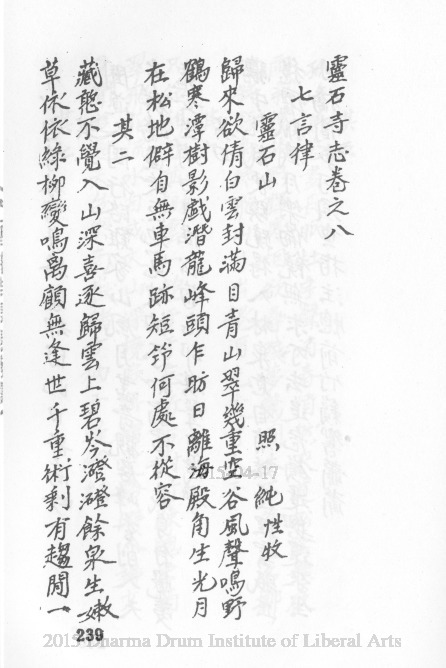 靈石寺志卷之八
七言律
靈石山
照純性牧
歸來欲倩白雲封滿目青山翠幾重空谷風聲鳴野
鶴寒潭樹影戲潛龍峰頭乍昉日離海殿角生光月
在松地僻自無車馬跡短筇何處不從容
其二
藏憨不覺入山深喜逐歸雲上碧岑磴磴餘泉生嫩
草依依綠柳變鳴禽顧無逢世千重術剩有趨閒一
239
2015-04-17
2015 Dharma Drum Institute of Liberal Arts